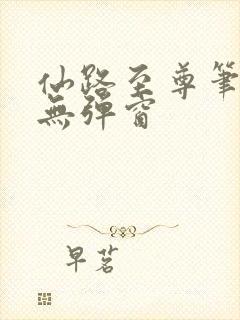 仙路至尊筆
無彈窗
早茗